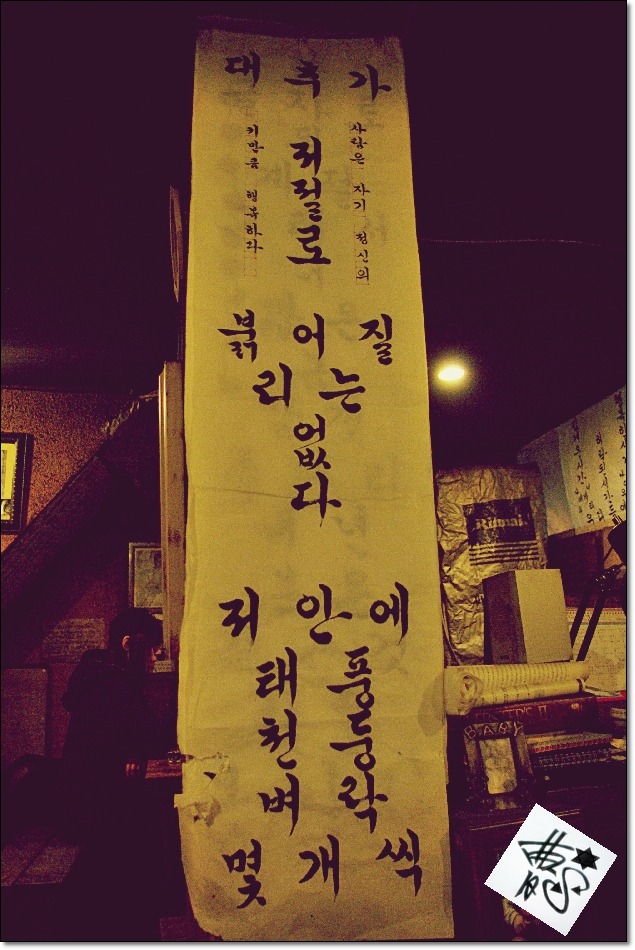 대 추 가
저절로
사람은 자기 정신의
키만큼 행복하다
붉 어 질
리 는
없다
저 안 에
태 풍
천 둥
벼 락
몇 개 씩
BABY